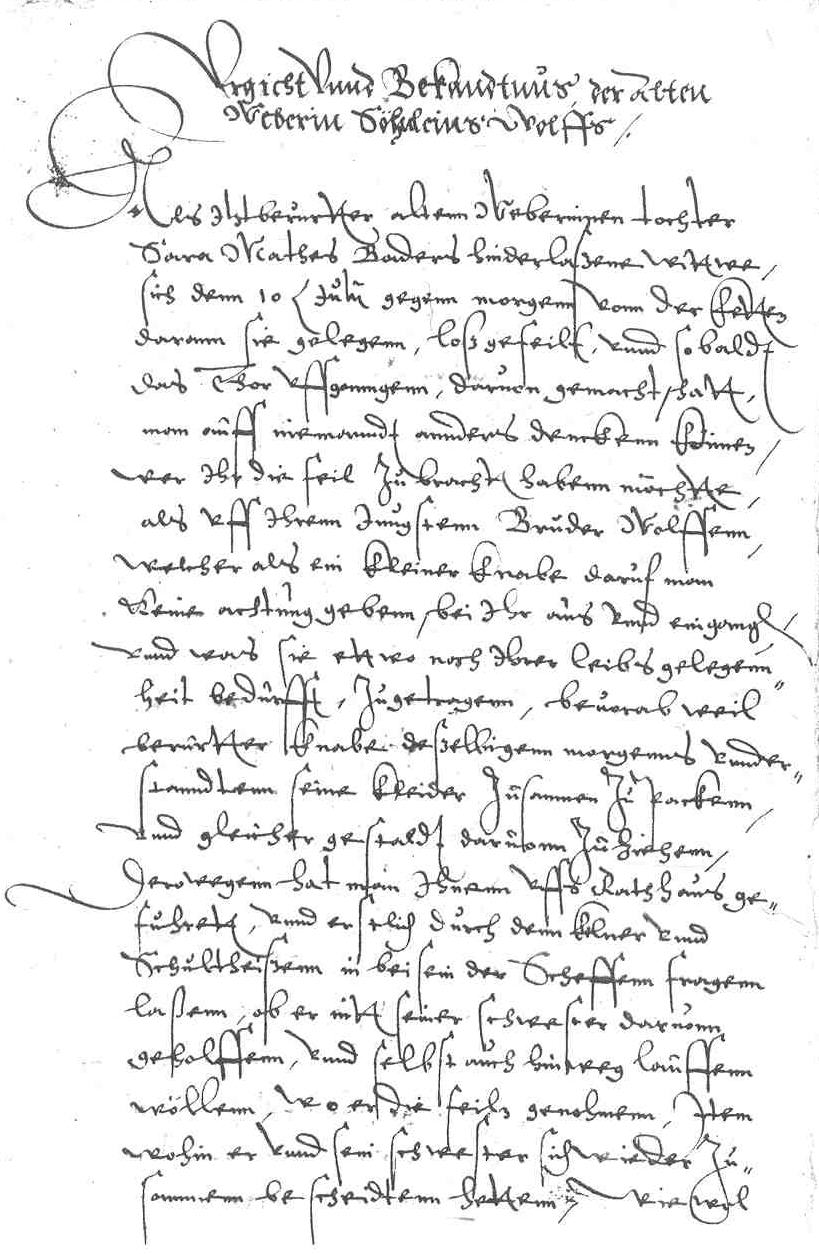 Urgicht Vnnd Bekandtnus, der Alten
Weberin Söhnleins Wolffs /
Als Itztberurtter altenn Weberinnen tochter
Sara Mathes Baders hinderlaßene wittwe,
sich denn 10 Julii gegenn morgenn vonn der Ketten
darann sie gelegenn, loß gefeilt, vnnd so baldt
das Thor vffganngenn, daruon gemacht hatt,
man auff niemanndt annders denckenn können,
wer Ihr die feil Zubracht habenn möchtte,
als vff Ihrenn Jungstenn Bruder Wolffenn,
welcher als ein kleiner knabe daruf man
keine achtung gebenn, bei Ihr aus vnnd eingangen,
vnnd was sie ettwo nach Ihrer leibs gelegenn"
heit bedurfft, Zugetragenn, beuorab weil
berurtter knabe deßelbigenn morgenns vnnder"
stanndtenn seine kleider Zusammen Zu Packenn,
vnnd gleicher gestaldt daruonn Zu Ziehenn,
Derowegenn hat man Ihnenn vffs Rathhaus ge"
fuhrett, vnnd erstlich durch denn kelner vnnd
Schultheißenn in beisein der Scheffenn fragenn
laßenn, ob er nitt seiner schwester daruonn
geholffenn, vnnd selbst auch hinweg lauffenn
wöllenn, wo er die feiln genohmenn, Item
wohin er vnnd sein schwester sich wieder Zu"
sammenn bescheidtenn hettenn, Wiewol